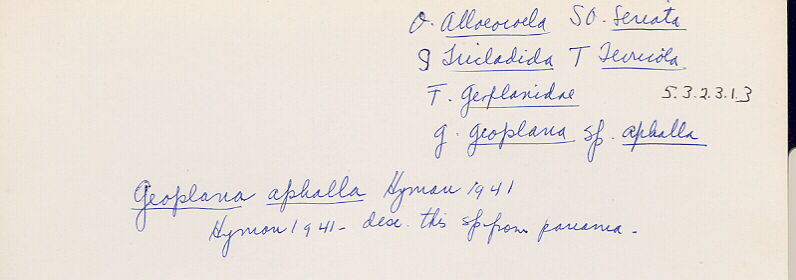 O. Alloeocoela SO. Seriata
S Tricladida T Terricola
F. Geoplanidae 5.3.2.3.1.3
g. geoplana sp. aphalla
Geoplana aphalla Hyman 1941
Hyman 1941 - desc. this sp. from panama -